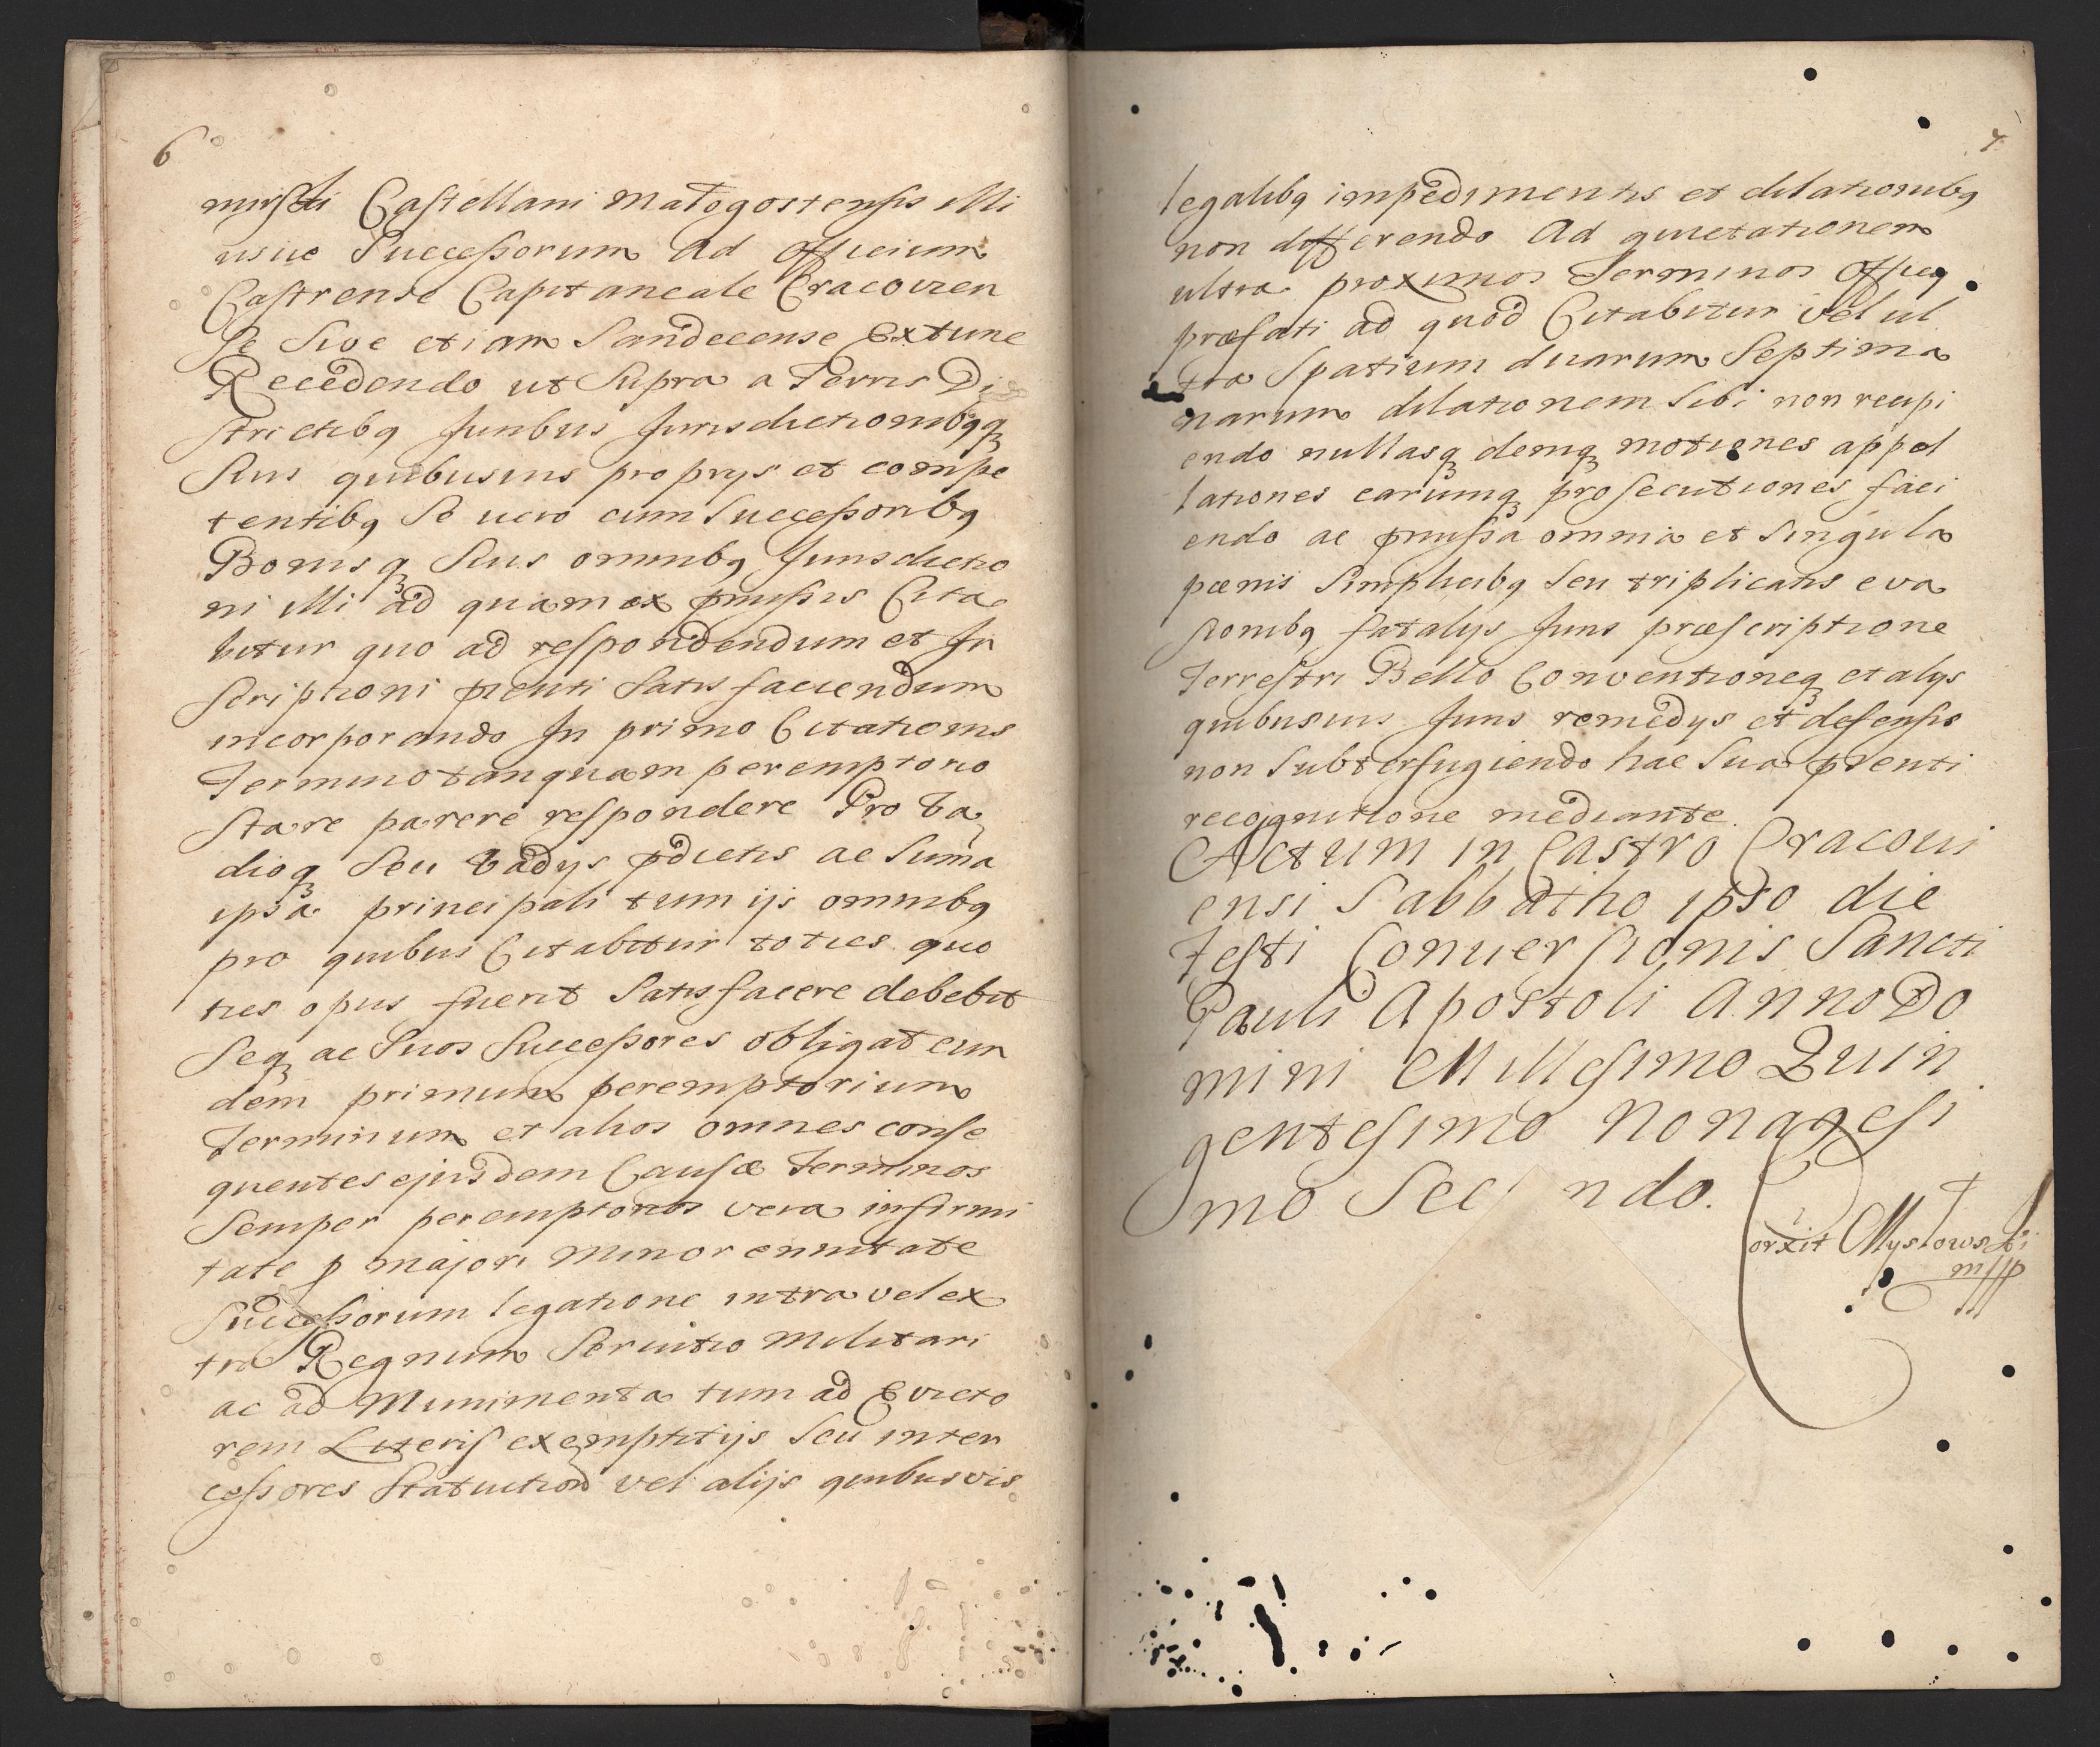 6
nirski Castellani Małogostensis illi
usue Successorum Ad officium
Castrense Capitaneale Cracovien
se Sive etiam Sandecense Extunc
Recedendo ut Supra a Terris Di
strictibq Juribus Jurisdictionibqq
Suis quibusuis proprys et compe
tentibq Se uero cum Successoribq
Bonisq Suis omnibq Jurisdictio
ni illi ad quam ex pmissis Cita
bitur quo ad respondendum et In
scriptioni pnti Satisfaciendum
incorporando In primo Citationis
Termino tanquam peremptorio
Stare parere respondere Pro Va
dioq Seu Vadys pdictis ac Suma
ipsa principali tum ijs omnibq
pro quibus Citabitur toties quo
ties opus fuerit Satisfacere debebit
Seq ac Suos Successores obligat eun
dem primum peremptorium
Terminum et alios omnes conse
quentes ejusdem Causæ Terminos
Semper peremptorios vera infirmi
tate p majori minorennitate
Successorum legatione intra vel ex
tra Regnum Seruitio Militari
ac ad Munimenta tum ad Evicto
rem Literis exemptitijs Seu inter
cessores Statuitiod vel alijs quibusvis
7
legalibq impedimentis et dilationibq
non differendo Ad quietationem
ultra proximos Terminos Officq
præfati ad quod Citabitur vel ul
tra Spatium duarum Septima
narum dilationem Sibi non recipi
endo nullasq demq motiones appel
lationes earumq prosecutiones faci
endo ac pmissa omnia et Singula
pœnis Simplicibq Seu triplicatis eva
sionibq fatalijs Juris præscriptione
Terrestri Bello Conventioneq et alys
quibusuis Juris remedys et defensis
non Subterfugiendo hac Sua pnti
recognitione mediante.
Actum in Castro Cracovi
ensi Sabbatho ipso die
Festi Conuersionis Sancti
Pauli Apostoli Anno Do
mini Millesimo Quin
gentesimo Nonagesi
mo Secundo.
orxit Mysłowski
mpp